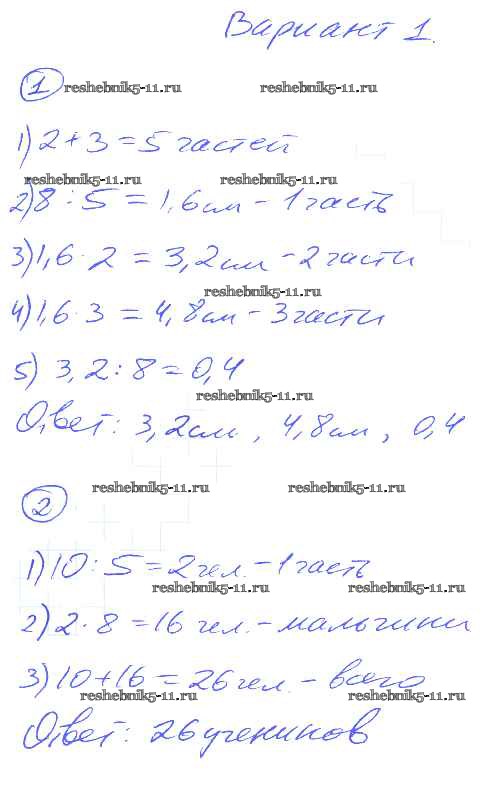 Вариант 1.
1 reshebnik5-11.ru reshebnik5-11.ru
1) 2 + 3 = 5 частей
reshebnik5-11.ru reshebnik5-11.ru
2) 8 : 5 = 1,6 см - 1 часть
3) 1,6 · 2 = 3,2 см - 2 части
reshebnik5-11.ru
4) 1,6 · 3 = 4,8 см - 3 части
5) 3,2 : 8 = 0,4
reshebnik5-11.ru
Ответ: 3,2 см, 4,8 см, 0,4
reshebnik5-11.ru reshebnik5-11.ru
2
1) 10 : 5 = 2 чел. - 1 часть
reshebnik5-11.ru reshebnik5-11.ru
2) 2 · 8 = 16 чел. - мальчики
3) 10 + 16 = 26 чел. - всего
reshebnik5-11.ru reshebnik5-11.ru
Ответ: 26 учеников